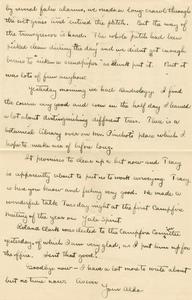 by several false alarms, we made a long crawl through
the wet grass and entered the patch. But the way of
the transgressor is harder. The whole patch had been
picked clean during the day and we did not get enough
berries to make a as Brent put it. But it
was lots of fun anyhow.
Yesterday morning we had Dendrology. I find
the course very good and even in the half day I learned
a lot about distinguishing different trees. There is a
botanical library over in Mr. Pinchot's place which I
hope to make use of before long.
It promises to clear up a bit now and Tracy
is apparently about to put to work surveying. Tracy
is here you know and feeling very good. He made a
wonderful talk Tuesday night at the first Campfire
meeting of the year on Yale Spirit.
Leland Clark was elected to the Campfire Com.
yesterday of which I am very glad, as I put him up for
the office. Isn't that good!
Goodbye now - I have a lot more to write about
but no time now.
Your Aldo.